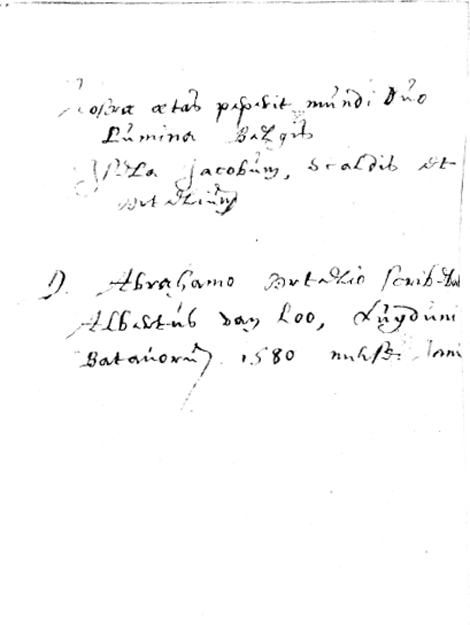 Nostra ætas peperit mundi duo
Lumina Belgis
Isela Jacobum, Scaldis et
Ortelium
D. Abrahamo Ortelio scrib
Albertus van Loo, Lugduni
Batavorum 1580